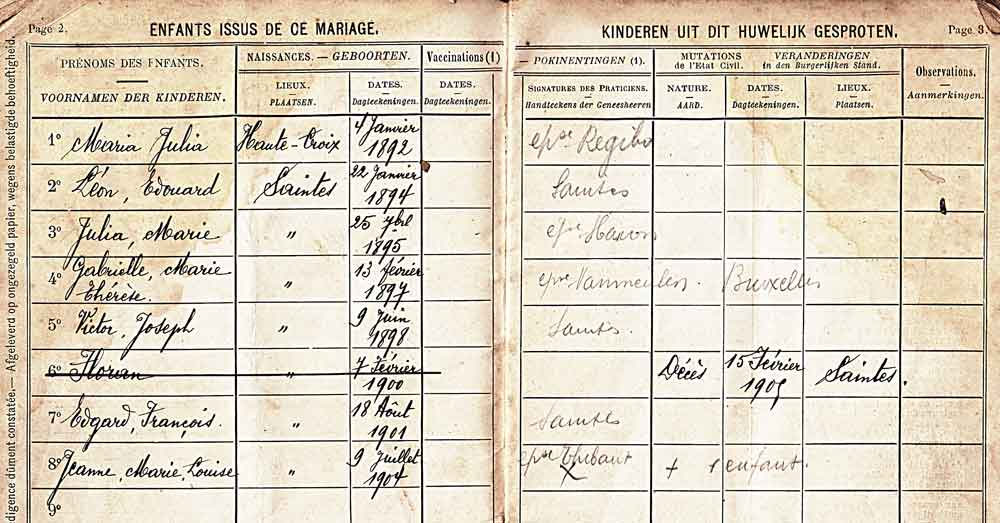 Page 2. ENFANTS ISSUS DE CE MARIAGE.
PRÉNOMS DES ENFANTS. — VOORNAMEN DER KINDEREN.
NAISSANCES. — GEBOORTEN.
LIEUX. — PLAATSEN.
DATES. — Dagteekeningen.
Vaccinations (1)
DATES. — Dagteekeningen.
1° Maria Julia Haute-Croix 4 Janvier 1892
2° Léon, Edouard Saintes 22 Janvier 1894
3° Julia, Marie " 25 7bre 1895
4° Gabrielle, Marie Thérèse. " 13 février 1897
5° Victor, Joseph " 9 Juin 1898
6° Florian " 7 Février 1900
7° Edgard, François. " 18 Août 1901
8° Jeanne, Marie, Louise " 9 Juillet 1904
9°
digence dûment constatée. — Afgeleverd op ongezegeld papier, wegens belastigde behoeftigheid.
KINDEREN UIT DIT HUWELIJK GESPROTEN. Page 3.
— POKINENTINGEN (1).
SIGNATURES DES PRATICIENS. — Handteekens der Geneesheeren
MUTATIONS de l'Etat Civil. — VERANDERINGEN in den Burgerlijken Stand.
NATURE. — AARD.
DATES. — Dagteekeningen.
LIEUX. — Plaatsen.
Observations. — Aanmerkingen.
epse Regibo
Saintes
epse Hanon
epse Vanmeulen. Bruxelles
Saintes.
Décès 15 Février 1905 Saintes.
Saintes
epse Thibaut + 1 enfant.